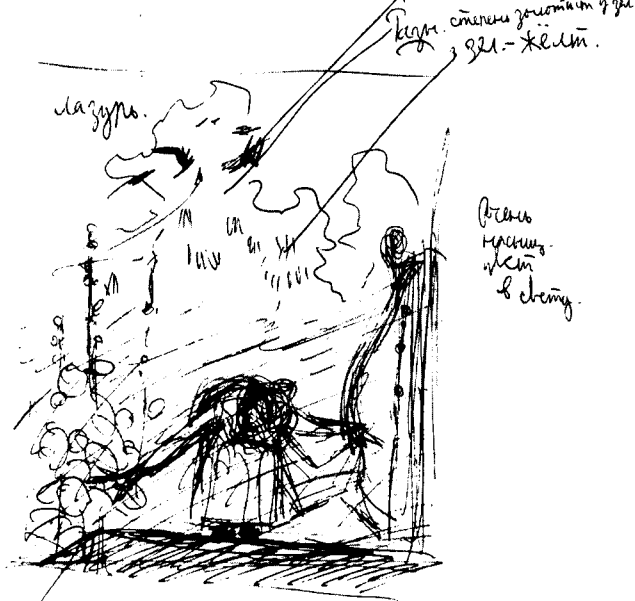 Разн. степень золотист
зел.-жёлт.
лазурь.
Очень
насыщ.
цвет
в свету.